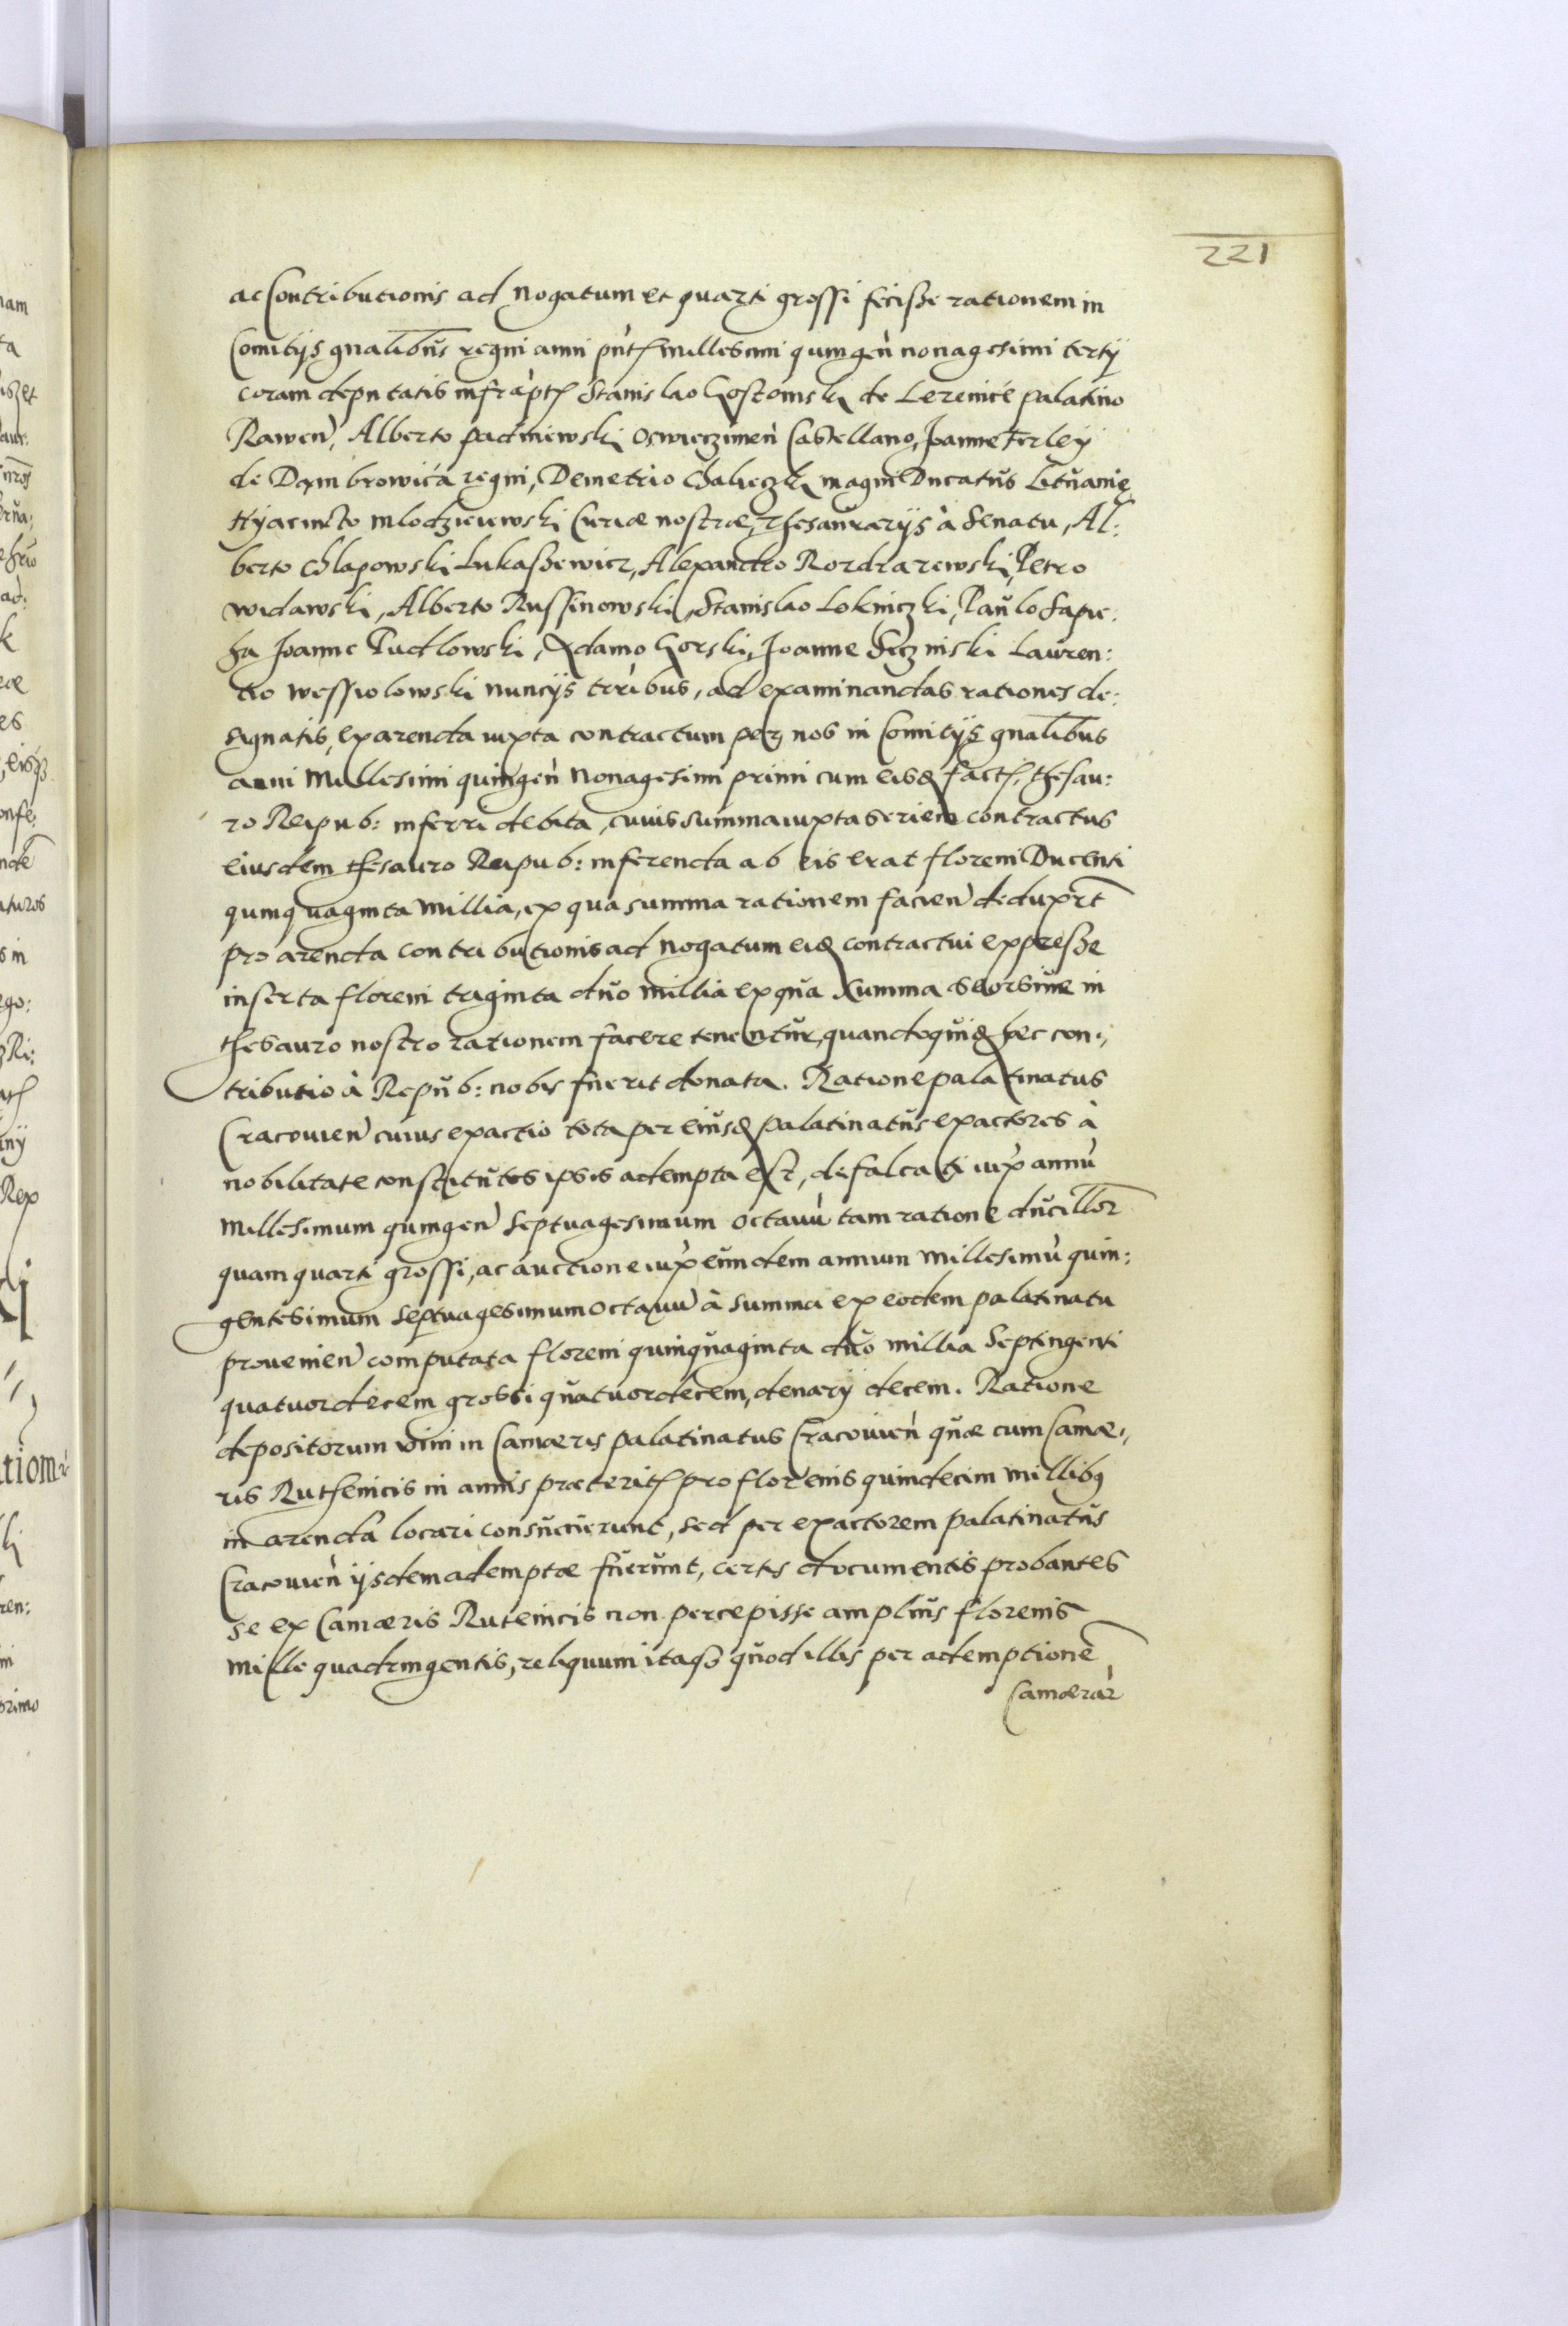 221
ac Contributionis ad Nogatum et quarti grossi fecisse rationem in
Comitijs gnalibus regni anni pnt. millesimi quingen nonagesimi tertij
coram deputatis infrapt. Stanislao Gostomski de Lezenicé palatino
Rawen, Alberto padniewski Oswieczimen Castellano, Joanne Firleÿ
de Dambrowica regni, Demetrio Chaleczki magni Ducatus Lituanie
Hyacincto mlodzieiewski Curiæ nostræ, Thesaurarijs à Senatu, Al:
berto Chlapowski Lukaszewicz, Alexandro Rozdrazewski, Petro
widawski, Alberto Russinowski, Stanislao Lokniczki, Paulo Sapie:
ha Joanne Pudlowski, Adamo Gorski, Joanne Seczniski Lauren:
tio wessiolowski nuncijs teribus, ad examinandas rationes de:
signatis, ex arenda iuxta contractum per nos in Comitijs gnalibus
anni Millesimi quingen Nonagesimi primi cum eisd fact., thesau:
ro Reipub: inferri debita, cuius summa iuxta seriem contractus
eiusdem thesauro Reipub: inferenda ab eis erat floreni Ducenti
quinquaginta Millia, ex qua summa rationem facien deduxert
pro arenda contributionis ad Nogatum eid contractui expresse
inserta floreni triginta duo millia ex qua summa seorsiue in
thesauro nostro rationem facere tenentur, quandoquid hec con:
tributio à Repub: nobis fuerit donata. Ratione palatinatus
Cracouien cuius exactio tota per eiusd palatinatus exactores à
nobilitate constitutos ipsis adempta est, defalcati iux annu
Millesimum quingen Septuagesimum Octauu tam ratione ducillor
quam quarti grossi, ac auctione iux eundem annum Millesimu quin:
gentesimum septuagesimum octauu à summa ex eodem palatinatu
prouenien computata floreni quinquaginta duo millia Septingenti
quatuordecem grossi quatuordecem, denarij decem. Ratione
depositorum vini in Camæris palatinatus Cracouien quæ cum Camæ:
ris Ruthenicis in annis præterit. pro florenis quindecim millibus
in arenda locari consueuerunt, sed per exactorem palatinatus
Cracouien ijsdem ademptæ fuerunt, certis documentis probantes
se ex Camæris Rutenicis non percepisse amplius florenis
mille quadringentis, reliquum itaq quod illis per ademptione
Camærar